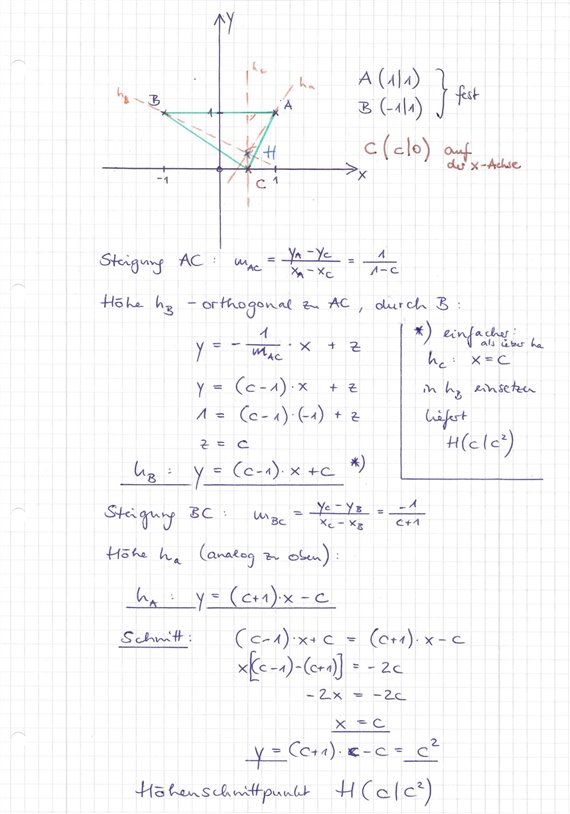 y
h_c
h_a
h_B
B
1
A
H
-1
C
1
x
A (1|1)
B (-1|1)
} fest
C (c|0) auf
der x-Achse
Steigung AC: m_AC = (y_A - y_C)/(x_A - x_C) = 1/(1-c)
Höhe h_B - orthogonal zu AC, durch B:
y = - 1/m_AC · x + z
y = (c-1)·x + z
1 = (c-1)·(-1) + z
z = c
h_B: y = (c-1)·x + c *)
*) einfacher:
als über ha
h_c: x = c
in h_B einsetzen
liefert
H(c|c²)
Steigung BC: m_BC = (y_C - y_B)/(x_C - x_B) = -1/(c+1)
Höhe h_a (analog zu oben):
h_A: y = (c+1)·x - c
Schnitt: (c-1)·x + c = (c+1)·x - c
x[(c-1)-(c+1)] = -2c
-2x = -2c
x = c
y = (c+1)·c - c = c²
Höhenschnittpunkt H(c|c²)